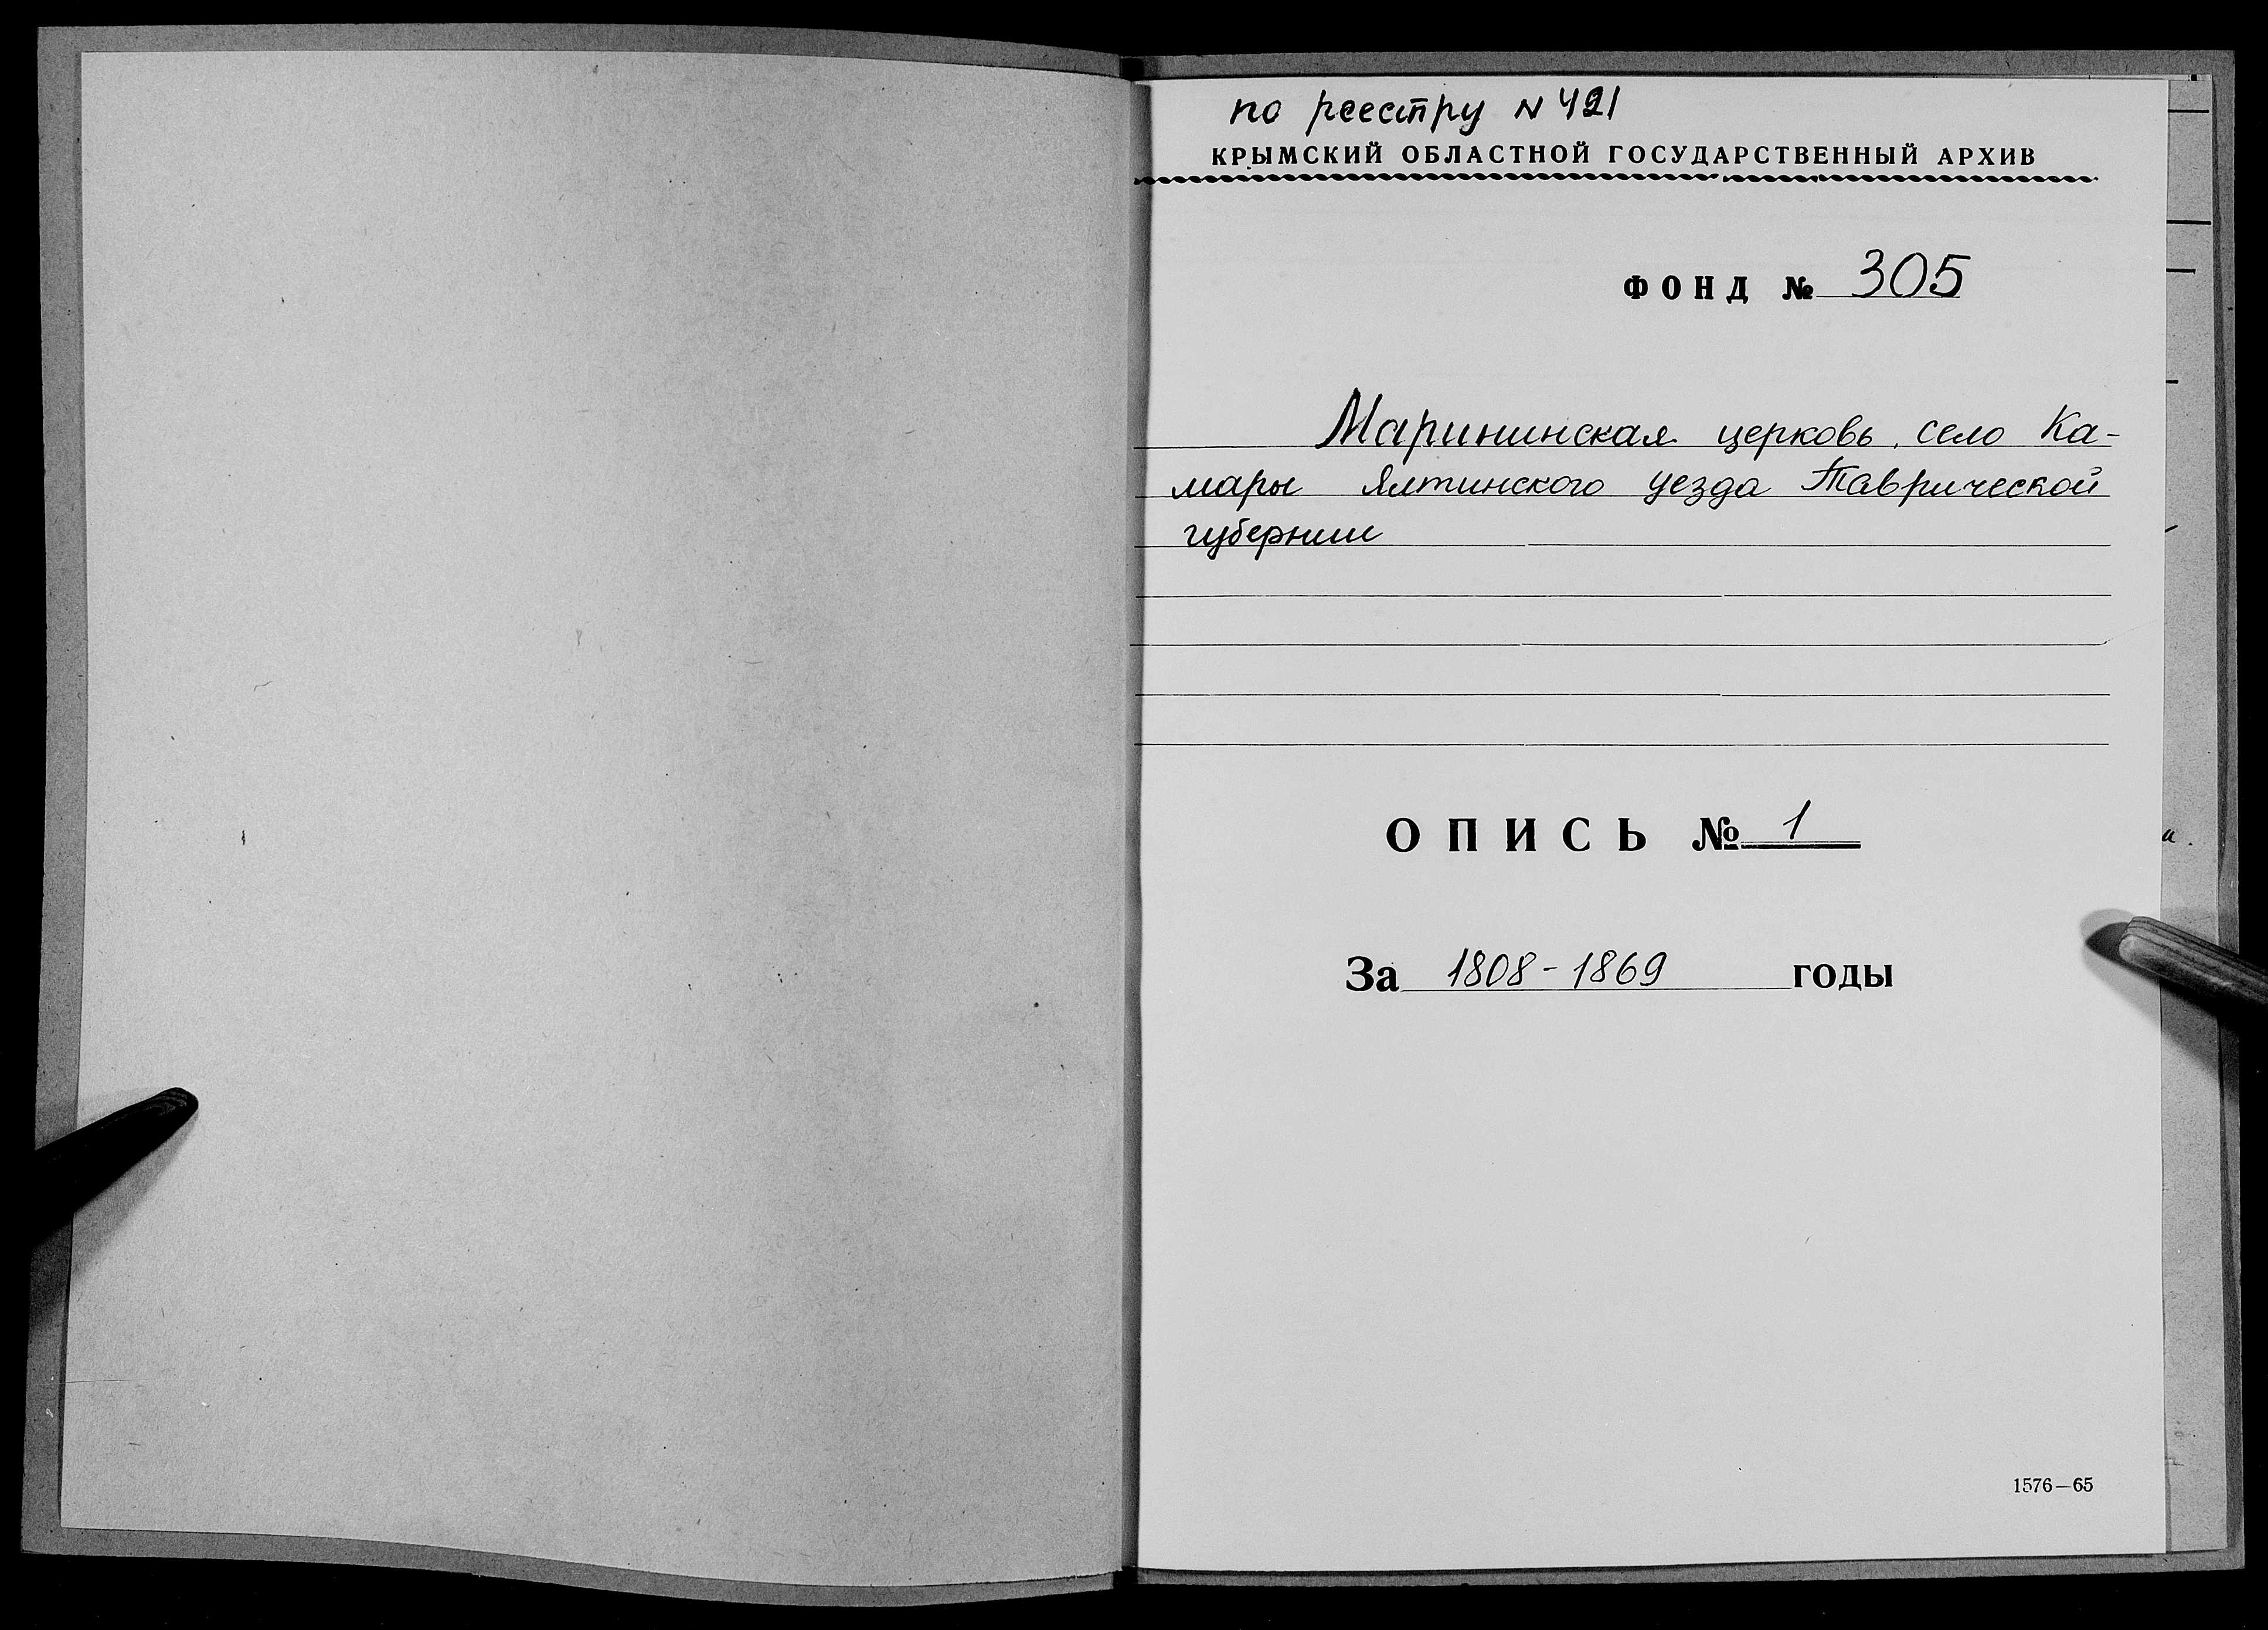 по реестру N 421
КРЫМСКИЙ ОБЛАСТНОЙ ГОСУДАРСТВЕННЫЙ АРХИВ
ФОНД № 305
Марининская церковь, село Ка-
мары Ялтинского уезда Таврической
губернии
ОПИСЬ № 1
За 1808-1869 годы
1576—65